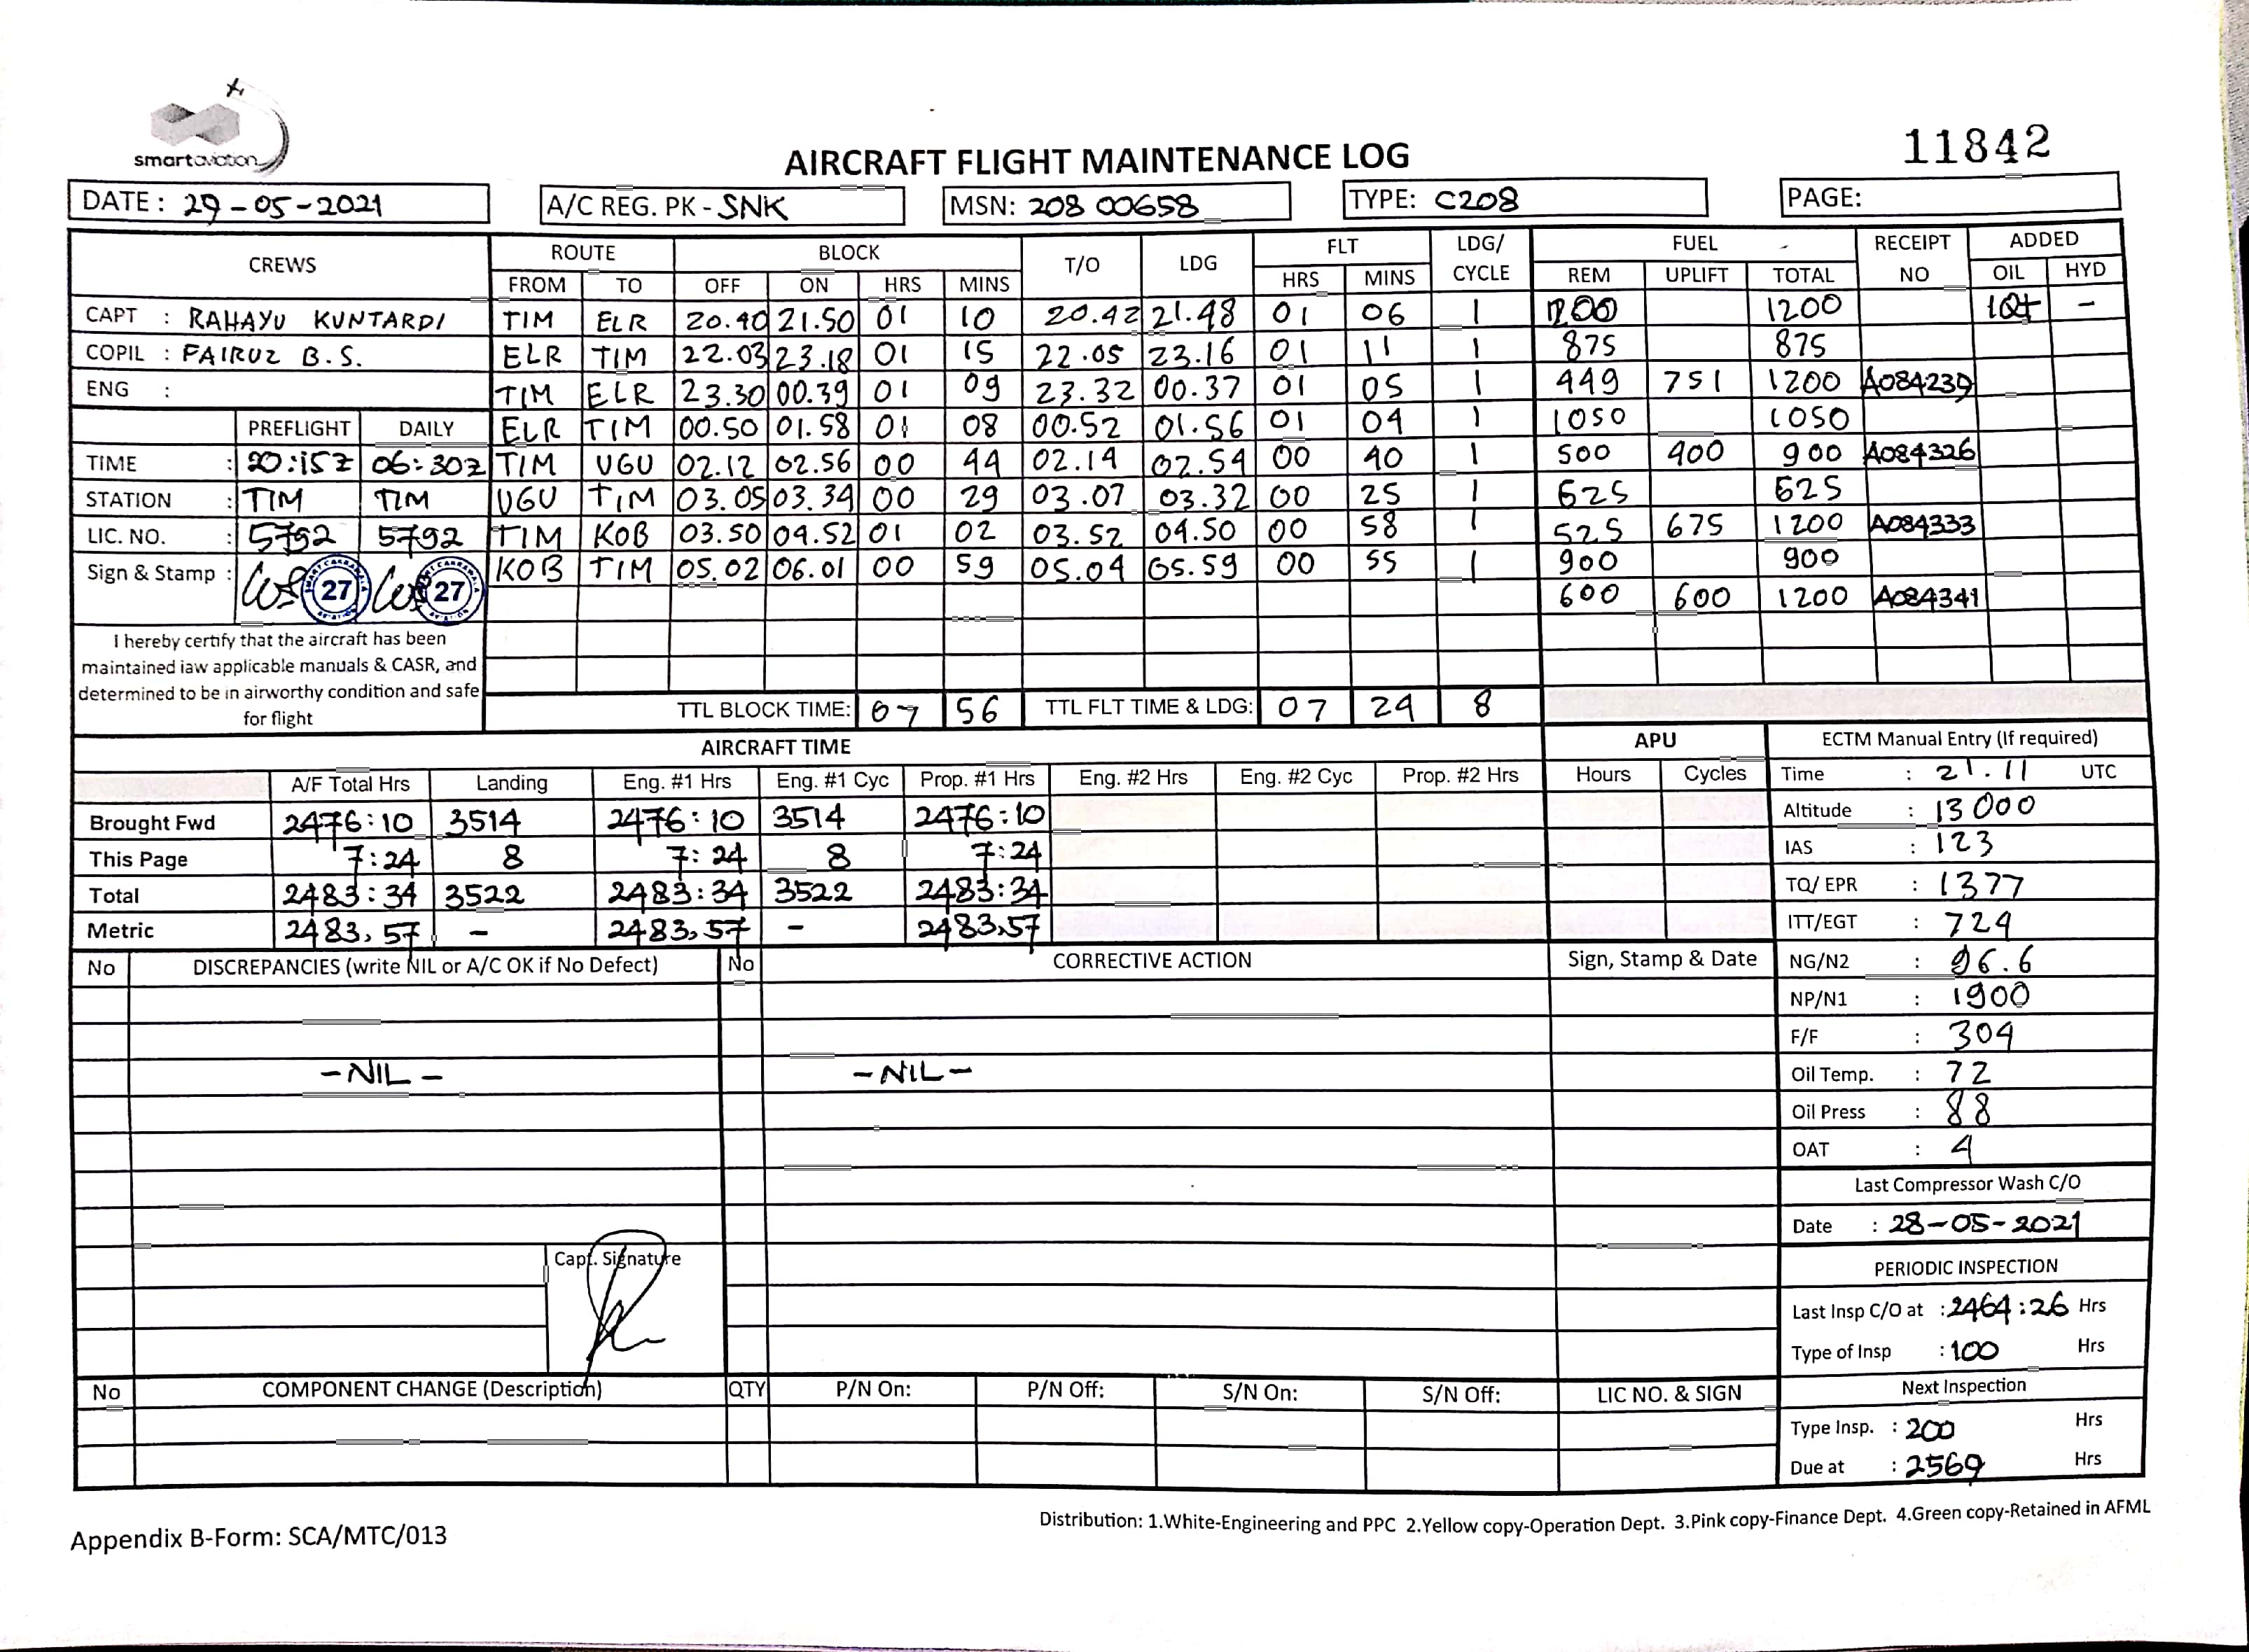 smartaviation
11842
AIRCRAFT FLIGHT MAINTENANCE LOG
DATE: 29-05-2021 A/C REG. PK - SNK MSN: 208 00658 TYPE: C208 PAGE:
CREWS ROUTE BLOCK T/O LDG FLT LDG/ CYCLE FUEL RECEIPT NO ADDED
FROM TO OFF ON HRS MINS HRS MINS REM UPLIFT TOTAL OIL HYD
CAPT : RAHAYU KUNTARDI TIM ELR 20.40 21.50 01 10 20.42 21.48 01 06 1 1200 1200 1Qt -
COPIL : FAIRUZ B.S. ELR TIM 22.03 23.18 01 15 22.05 23.16 01 11 1 875 875
ENG : TIM ELR 23.30 00.39 01 09 23.32 00.37 01 05 1 449 751 1200 A084239
PREFLIGHT DAILY ELR TIM 00.50 01.58 01 08 00.52 01.56 01 04 1 1050 1050
TIME : 20:15Z 06:30Z TIM UGU 02.12 02.56 00 44 02.14 02.54 00 40 1 500 400 900 A084326
STATION : TIM TIM UGU TIM 03.05 03.34 00 29 03.07 03.32 00 25 1 625 625
LIC. NO. : 5792 5792 TIM KOB 03.50 04.52 01 02 03.52 04.50 00 58 1 525 675 1200 A084333
Sign & Stamp : 27 27 KOB TIM 05.02 06.01 00 59 05.04 05.59 00 55 1 900 900
600 600 1200 A084341
I hereby certify that the aircraft has been
maintained iaw applicable manuals & CASR, and
determined to be in airworthy condition and safe
for flight
TTL BLOCK TIME: 07 56 TTL FLT TIME & LDG: 07 24 8
AIRCRAFT TIME APU ECTM Manual Entry (If required)
A/F Total Hrs Landing Eng. #1 Hrs Eng. #1 Cyc Prop. #1 Hrs Eng. #2 Hrs Eng. #2 Cyc Prop. #2 Hrs Hours Cycles Time : 21.11 UTC
Brought Fwd 2476:10 3514 2476:10 3514 2476:10 Altitude : 13000
This Page 7:24 8 7:24 8 7:24 IAS : 123
Total 2483:34 3522 2483:34 3522 2483:34 TQ/ EPR : 1377
Metric 2483,57 - 2483,57 - 2483,57 ITT/EGT : 724
No DISCREPANCIES (write NIL or A/C OK if No Defect) No CORRECTIVE ACTION Sign, Stamp & Date NG/N2 : 96.6
NP/N1 : 1900
F/F : 304
-NIL- -NIL- Oil Temp. : 72
Oil Press : 88
OAT : 4
Last Compressor Wash C/O
Date : 28-05-2021
Capt. Signature
PERIODIC INSPECTION
Last Insp C/O at : 2464:26 Hrs
Type of Insp : 100 Hrs
No COMPONENT CHANGE (Description) QTY P/N On: P/N Off: S/N On: S/N Off: LIC NO. & SIGN Next Inspection
Type Insp. : 200 Hrs
Due at : 2569 Hrs
Appendix B-Form: SCA/MTC/013
Distribution: 1.White-Engineering and PPC 2.Yellow copy-Operation Dept. 3.Pink copy-Finance Dept. 4.Green copy-Retained in AFML